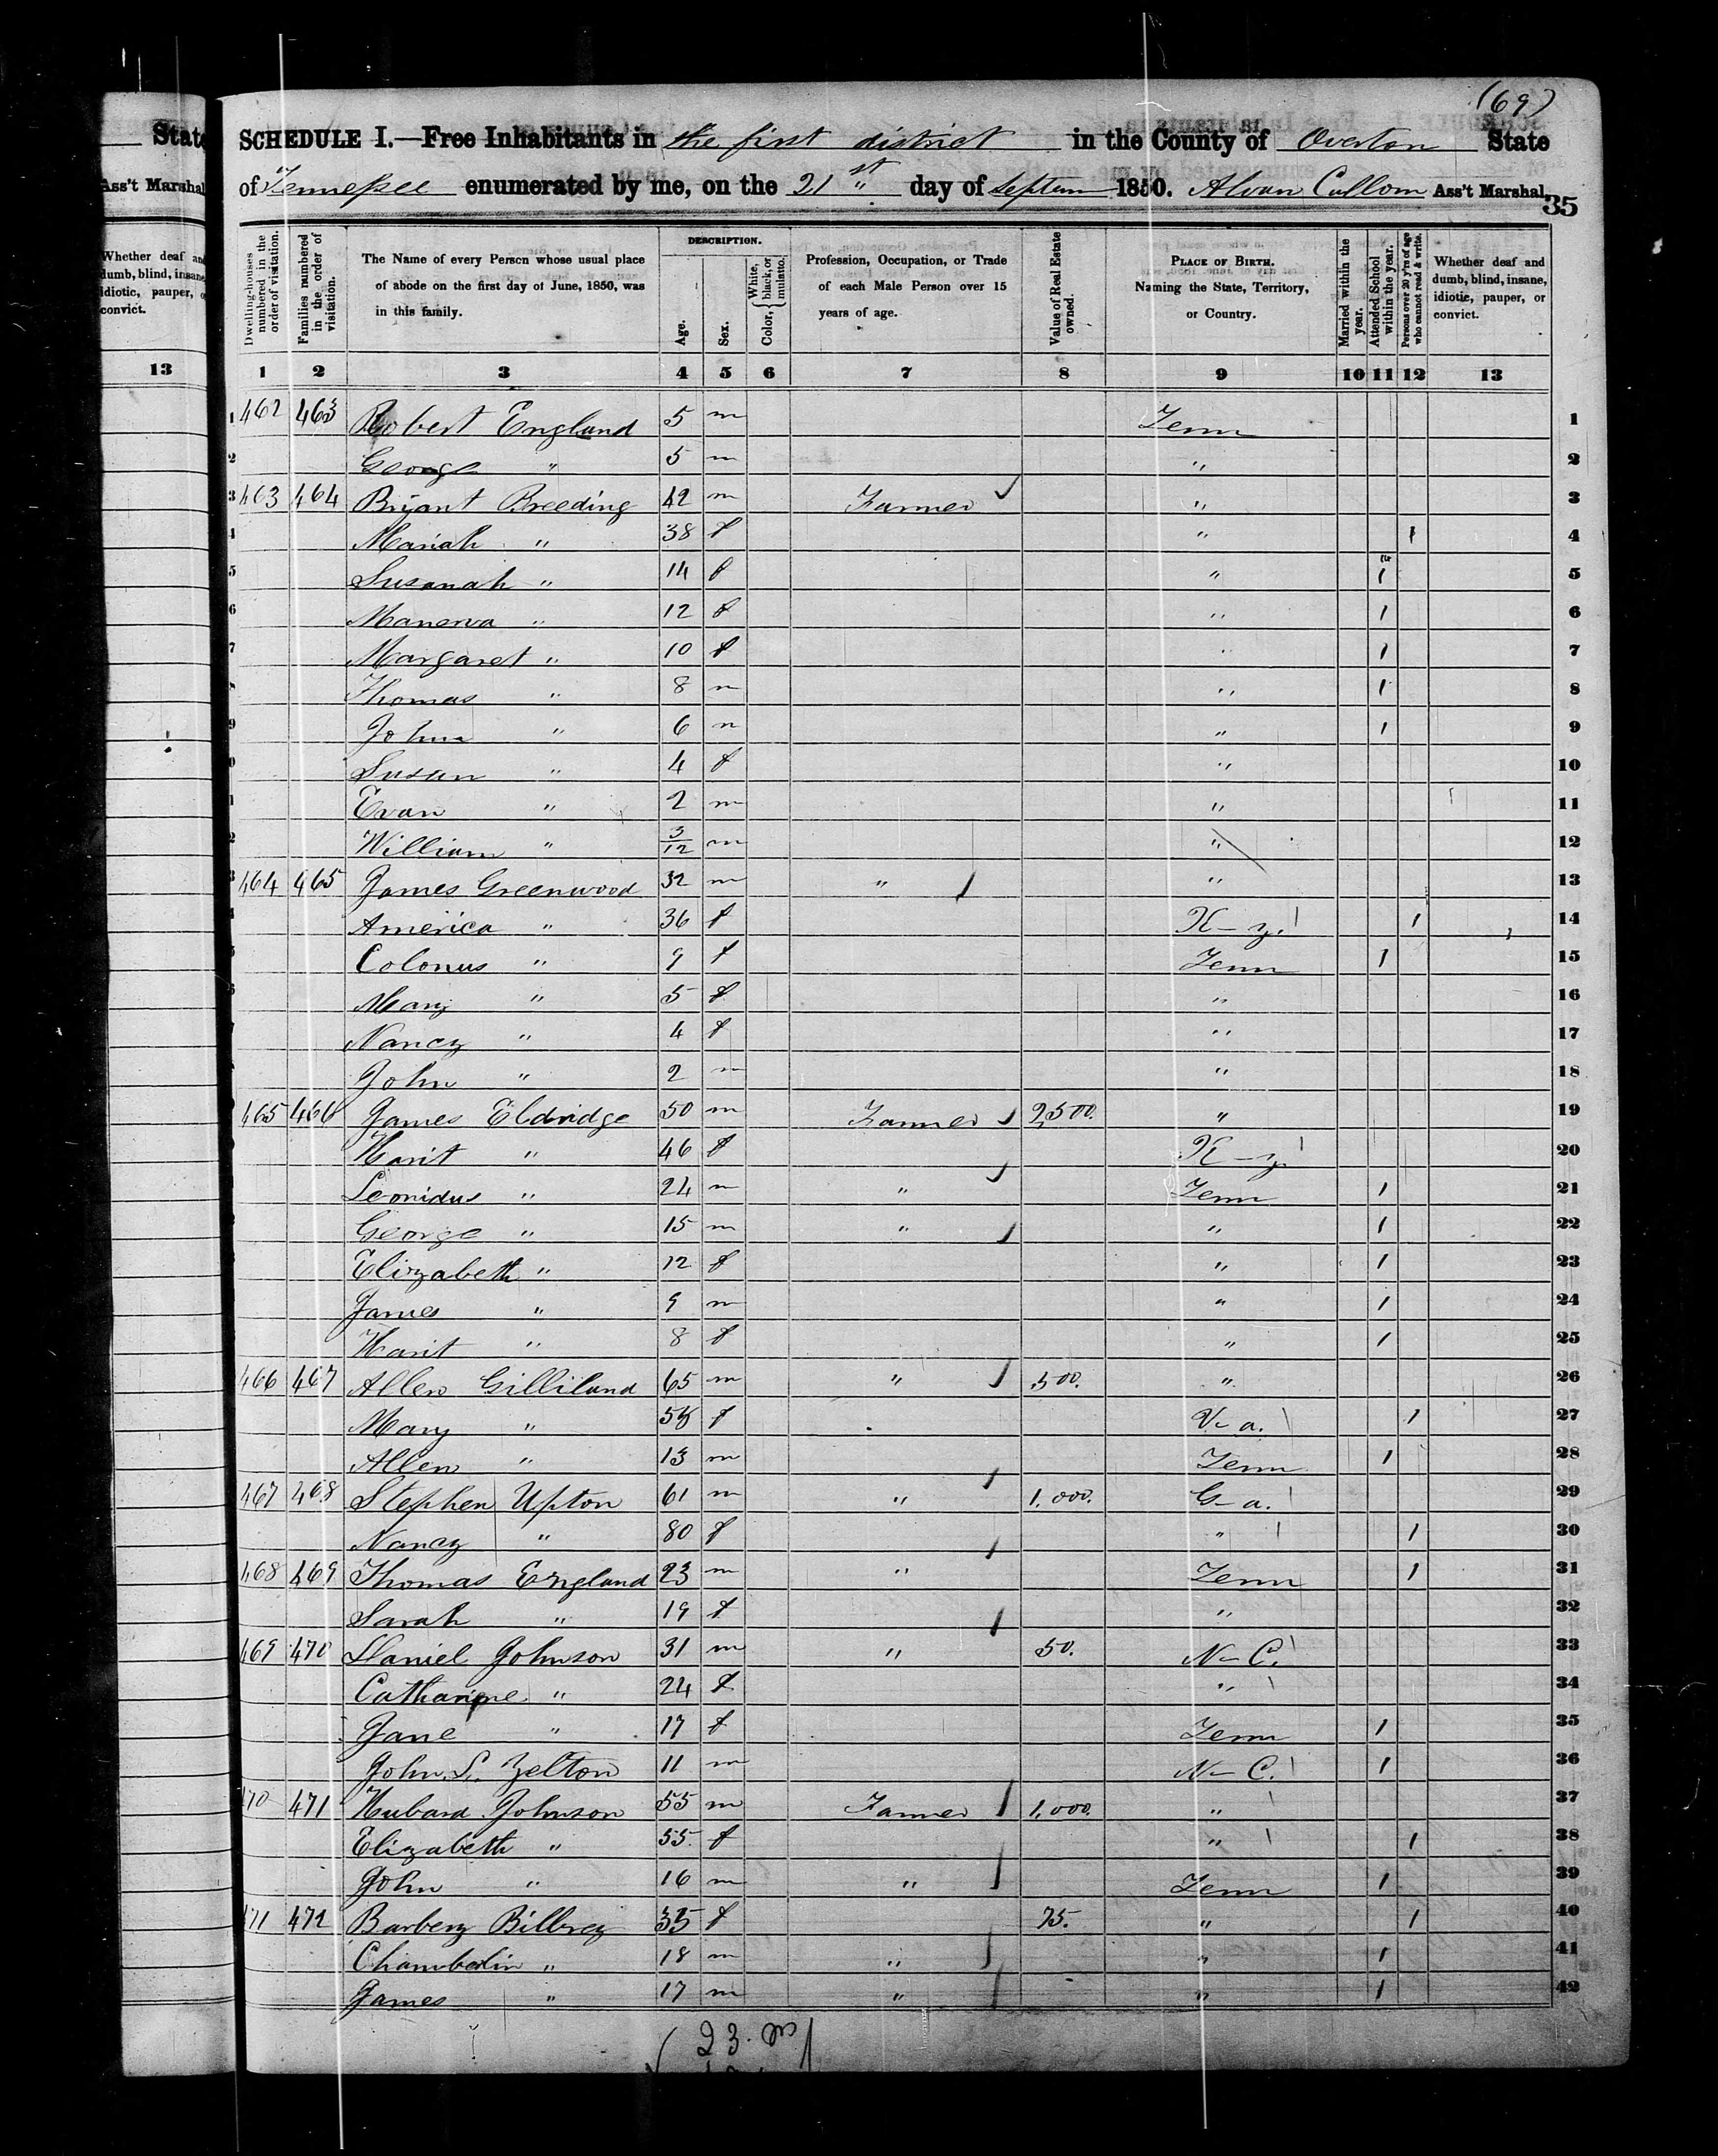 (69)
State
SCHEDULE I.—Free Inhabitants in the first district in the County of Overton State
Ass't Marshal
of Tennessee enumerated by me, on the 21st day of Septem 1850. Alvan Cullom Ass't Marshal.
35
Whether deaf and dumb, blind, insane, idiotic, pauper, or convict.
13
Dwelling-houses numbered in the order of visitation.
Families numbered in the order of visitation.
The Name of every Person whose usual place of abode on the first day of June, 1850, was in this family.
DESCRIPTION.
Age.
Sex.
Color, { White, black, or mulatto.
Profession, Occupation, or Trade of each Male Person over 15 years of age.
Value of Real Estate owned.
PLACE OF BIRTH. Naming the State, Territory, or Country.
Married within the year.
Attended School within the year.
Persons over 20 y'rs of age who cannot read & write.
Whether deaf and dumb, blind, insane, idiotic, pauper, or convict.
1 2 3 4 5 6 7 8 9 10 11 12 13
1 462 463 Robert England 5 m Tenn 1
2 George " 5 m " 2
3 463 464 Bryant Breeding 42 m Farmer " 3
4 Mariah " 38 f " 1 4
5 Susanah " 14 f " 1 5
6 Manerva " 12 f " 1 6
7 Margaret " 10 f " 1 7
8 Thomas " 8 m " 1 8
9 John " 6 m " 1 9
Susan " 4 f " 10
Evan " 2 m " 11
William " 3/12 m " 12
464 465 James Greenwood 32 m " " 13
America " 36 f K-y. 1 14
Colonus " 9 f Tenn 1 15
Mary " 5 f " 16
Nancy " 4 f " 17
John " 2 m " 18
465 466 James Eldridge 50 m Farmer 2,500. " 19
Harit " 46 f K-y. 20
Leonidus " 24 m " Tenn 1 21
George " 15 m " " 1 22
Elizabeth " 12 f " 1 23
James " 9 m " 1 24
Harit " 8 f " 1 25
466 467 Allen Gilliland 65 m " 500. " 26
Mary " f V-a. 1 27
Allen " 13 m Tenn 1 28
467 468 Stephen Upton 61 m " 1,000. G-a. 29
Nancy " 80 f " 1 30
468 469 Thomas England 23 m " Tenn 1 31
Sarah " 19 f " 32
469 470 Daniel Johnson 31 m " 50. N-C. 33
Catharine " 24 f " 34
Jane " 17 f Tenn 1 35
John S. Zelton 11 m N-C. 1 36
470 471 Hubard Johnson 55 m Farmer 1,000. " 37
Elizabeth " 55 f " 1 38
John " 16 m " Tenn 1 39
471 472 Barbery Bilbrey 35 f 75. " 1 40
Chamberlin " 18 m " " 1 41
James " 17 m " " 1 42
23. m